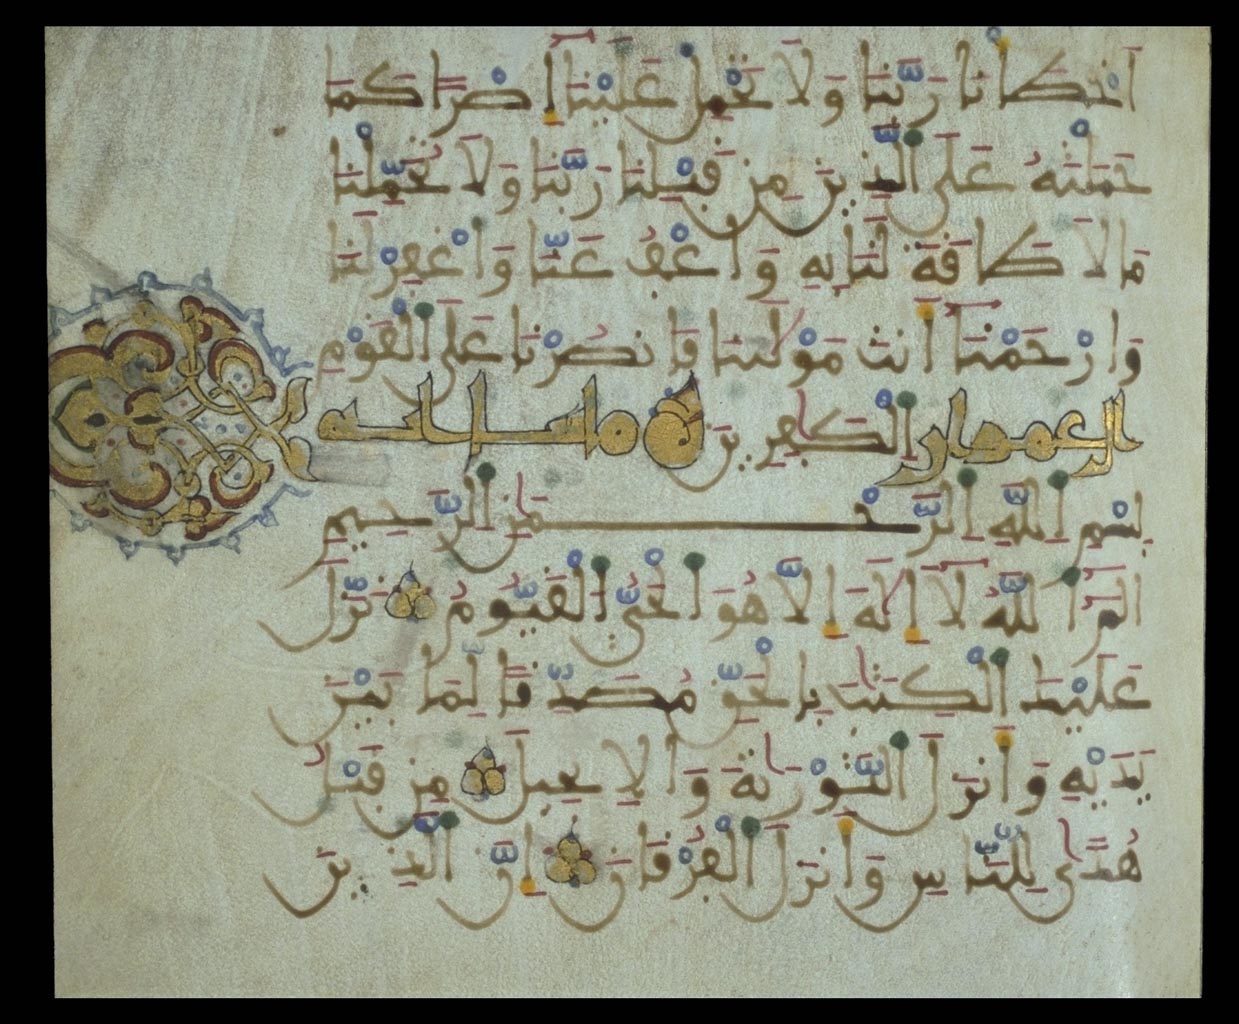 أَخْطَأْنَا رَبَّنَا وَلَا تَحْمِلْ عَلَيْنَا إِصْرًا كَمَا
حَمَلْتَهُ عَلَى الَّذِينَ مِن قَبْلِنَا رَبَّنَا وَلَا تُحَمِّلْنَا
مَا لَا طَاقَةَ لَنَا بِهِ وَاعْفُ عَنَّا وَاغْفِرْ لَنَا
وَارْحَمْنَا أَنتَ مَوْلَىٰنَا فَانصُرْنَا عَلَى الْقَوْمِ
الْكَٰفِرِينَ ال عمران مائتا ايه
بِسْمِ اللَّهِ الرَّحْمَٰنِ الرَّحِيمِ
الٓمٓ اللَّهُ لَا إِلَٰهَ إِلَّا هُوَ الْحَيُّ الْقَيُّومُ نَزَّلَ
عَلَيْكَ الْكِتَٰبَ بِالْحَقِّ مُصَدِّقًا لِمَا بَيْنَ
يَدَيْهِ وَأَنزَلَ التَّوْرَىٰةَ وَالْإِنجِيلَ مِن قَبْلُ
هُدًى لِلنَّاسِ وَأَنزَلَ الْفُرْقَانَ إِنَّ الَّذِينَ